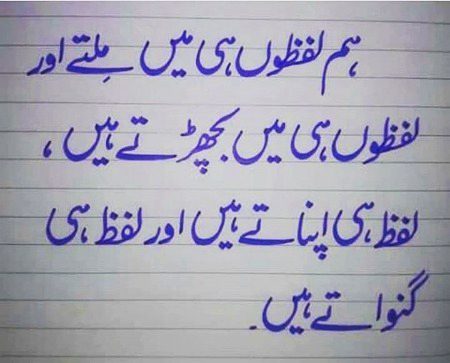 ہم لفظوں ہی میں مِلتے اور
لفظوں ہی میں بچھڑتے ہیں ،
لفظ ہی اپناتے ہیں اور لفظ ہی
گنواتے ہیں ۔